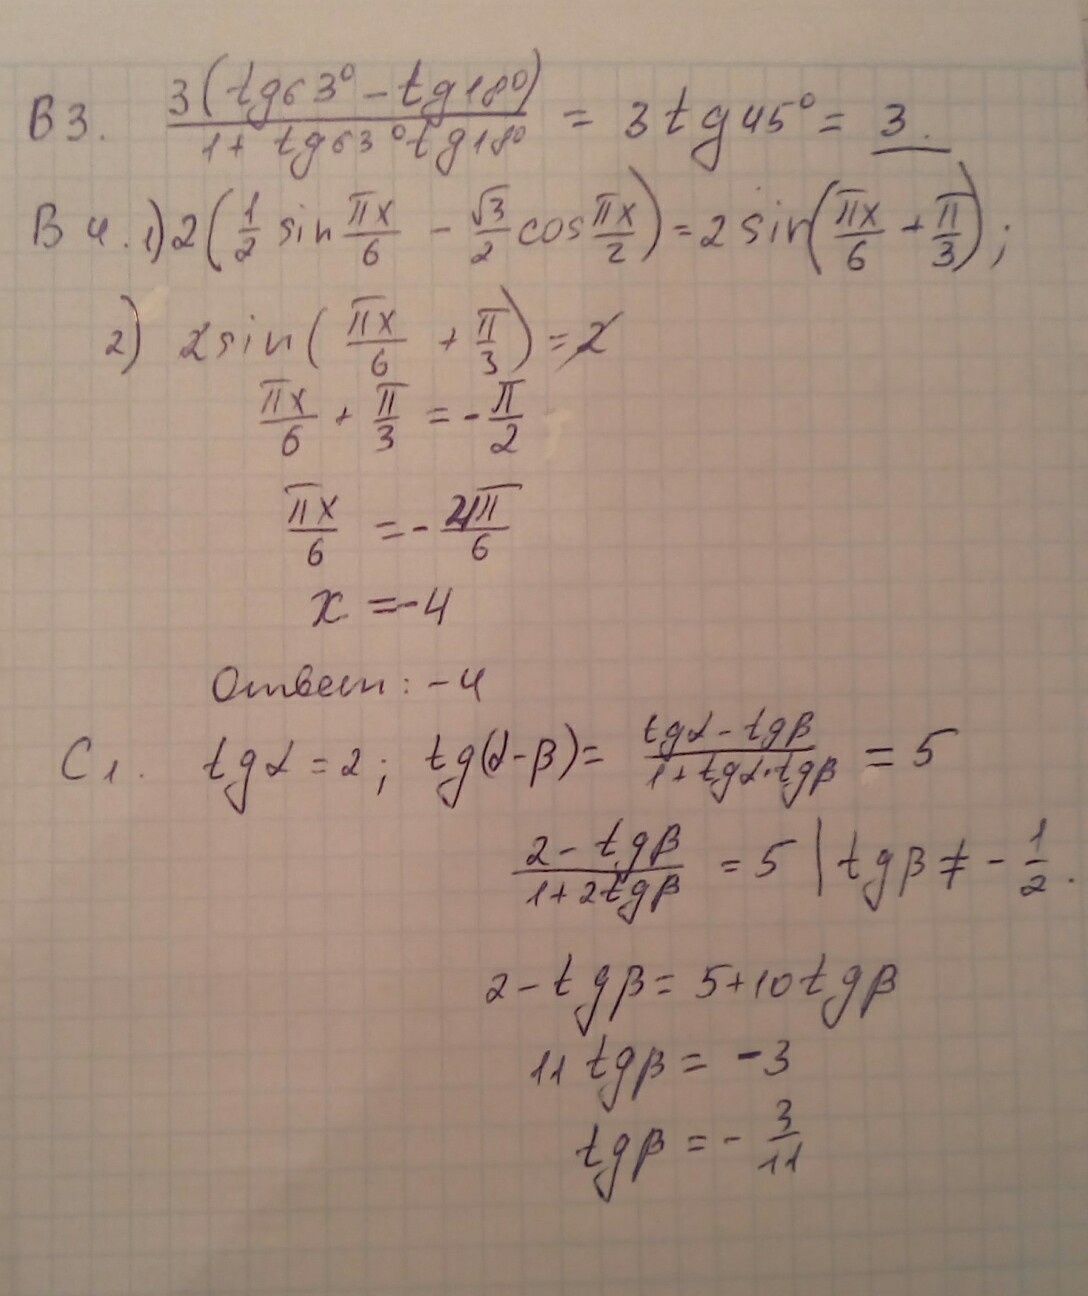 В 3. 3(tg63° - tg18°) / 1 + tg63°tg18° = 3tg45° = 3.
В 4. 1) 2(1/2 sin πx/6 - √3/2 cos πx/2) = 2 sin(πx/6 + π/3);
2) 2sin(πx/6 + π/3) = 2
πx/6 + π/3 = -π/2
πx/6 = - 4π/6
x = -4
Ответ: -4
С 1. tgα = 2; tg(α-β) = tgα - tgβ / 1 + tgα·tgβ = 5
2 - tgβ / 1 + 2tgβ = 5 | tgβ ≠ - 1/2.
2 - tgβ = 5 + 10tgβ
11 tgβ = -3
tgβ = - 3/11